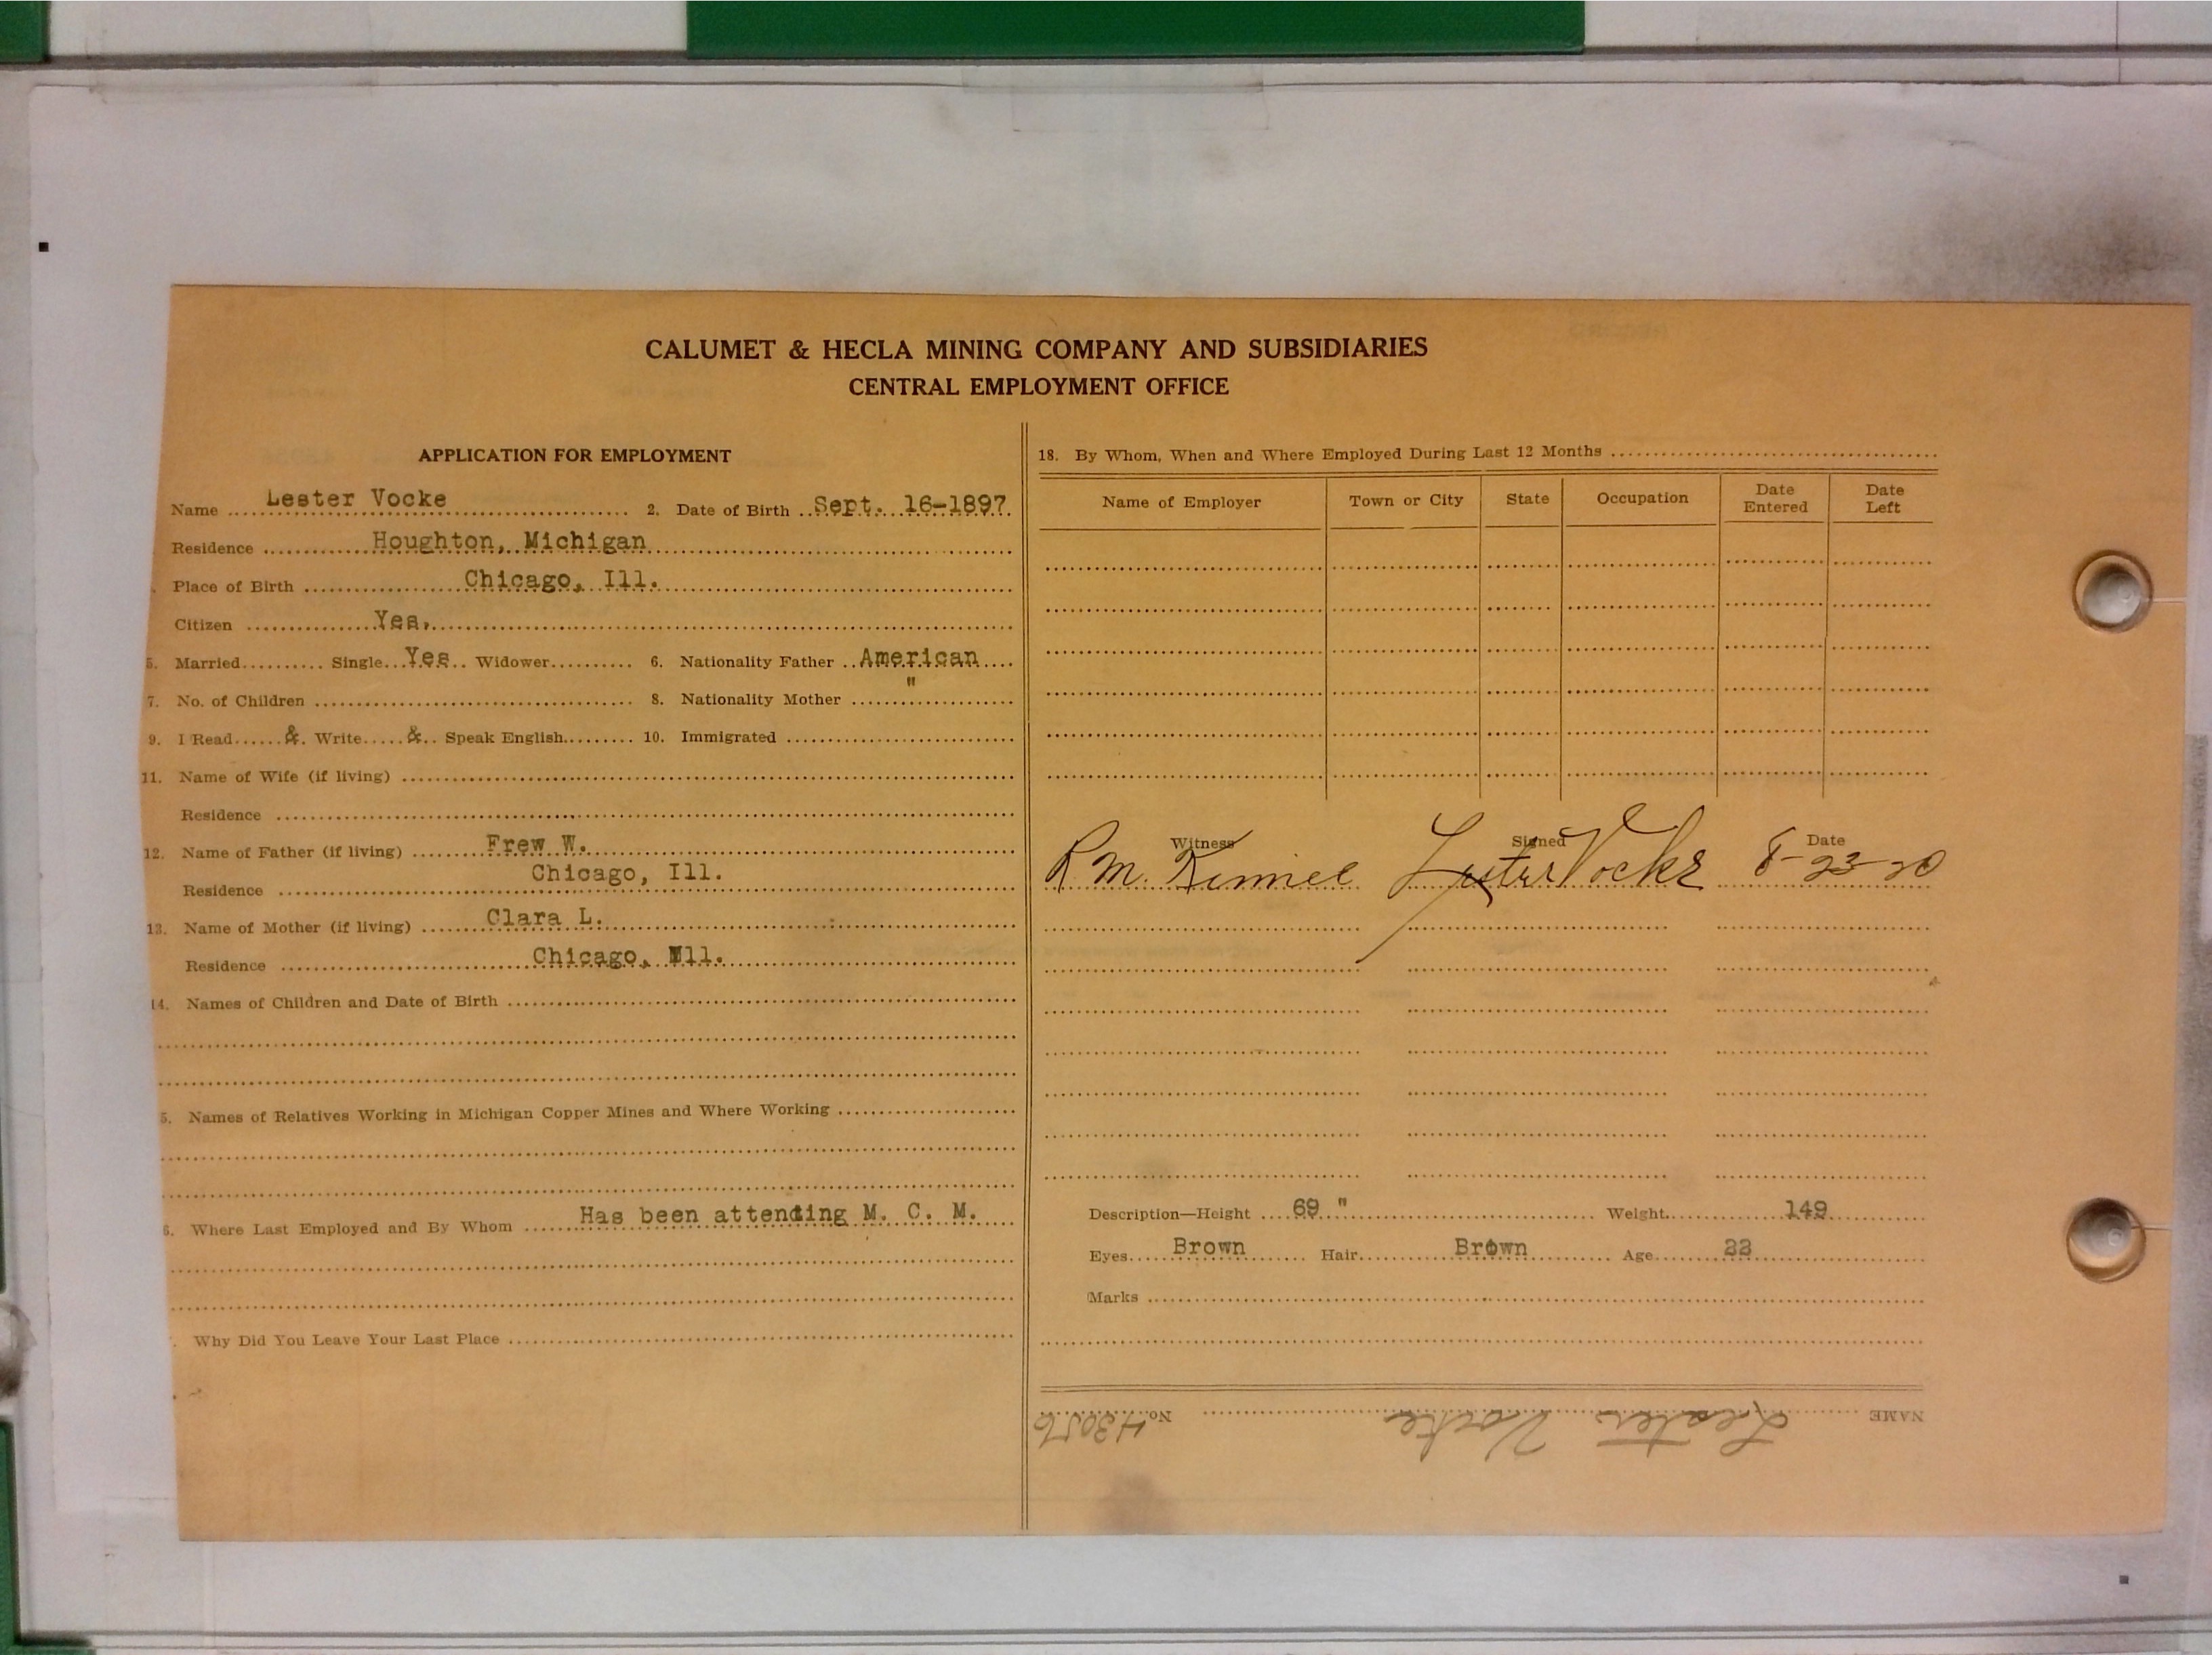 CALUMET & HECLA MINING COMPANY AND SUBSIDIARIES
CENTRAL EMPLOYMENT OFFICE
APPLICATION FOR EMPLOYMENT
Name Lester Vocke 2. Date of Birth Sept. 16-1897
Residence Houghton, Michigan
Place of Birth Chicago, Ill.
Citizen Yes,
5. Married Single Yes Widower 6. Nationality Father American
7. No. of Children 8. Nationality Mother "
9. I Read & Write & Speak English 10. Immigrated
11. Name of Wife (if living)
Residence
12. Name of Father (if living) Frew W.
Residence Chicago, Ill.
13. Name of Mother (if living) Clara L.
Residence Chicago, Ill.
14. Names of Children and Date of Birth
5. Names of Relatives Working in Michigan Copper Mines and Where Working
6. Where Last Employed and By Whom Has been attending M. C. M.
Why Did You Leave Your Last Place
18. By Whom, When and Where Employed During Last 12 Months
Name of Employer Town or City State Occupation Date Entered Date Left
Witness Signed Date
R M. Lester Vocke 8-23-20
Description—Height 69 " Weight 149
Eyes Brown Hair Brown Age 22
Marks
NAME Lester Vocke No. 43056